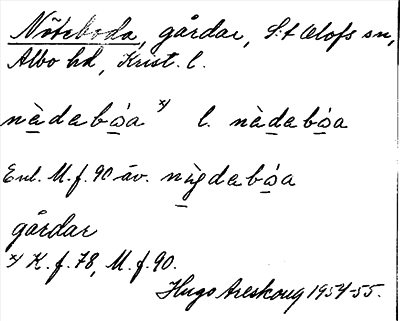 Nöteboda, gårdar, S:t Olofs sn,
Albo hd, Krist. l.
nèdabǿa x) l. nèdabǿa
Enl. M. f. 90 äv. nìgdabǿa
gårdar
x) K. f. 78, M. f. 90.
Hugo Areskoug 1954-55.